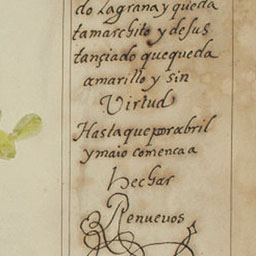 do Lagrana y queda
tamarchito y desus
tançiado quequeda
amarillo y sin
Virtud
Hastaqueporabril
y maio comença a
hechar
Renuevos